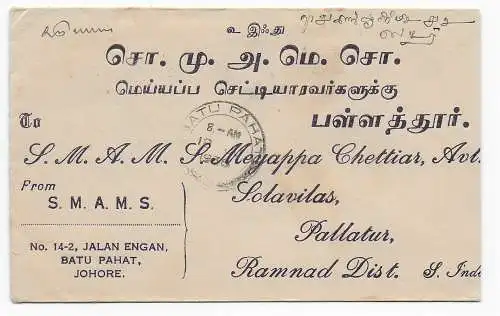 உ இஃது
சொ. மு. அ. மெ. சொ.
மெய்யப்ப செட்டியாரவர்களுக்கு
To பள்ளத்தூர்.
BATU PAHAT
8 - AM
S. M. A. M. S. Meyappa Chettiar, Avl.
Solavilas,
Pallatur,
Ramnad Dist. S. Ind
From
S. M. A. M. S.
No. 14-2, JALAN ENGAN,
BATU PAHAT,
JOHORE.